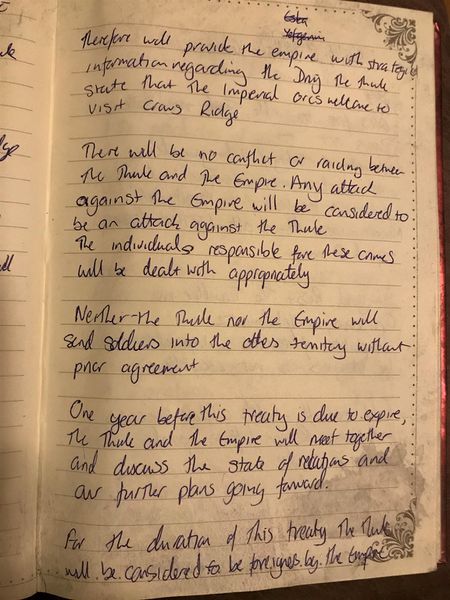 Eska
Yevgenni
Therefore will provide the empire with strategic
information regarding the Druj the Thule
state that the Imperial orcs welcome to
visit Crows Ridge
There will be no conflict or raiding between
the Thule and the Empire. Any attack
against the Empire will be considered to
be an attack against the Thule
The individuals responsible fore these crimes
will be dealt with appropriately
Neither the Thule nor the Empire will
send soldiers into the others territory without
prior agreement
One year before this treaty is due to expire,
the Thule and the Empire will meet together
and discuss the state of relations and
our further plans going forward.
For the duration of this treaty the Thule
will be considered to be foreigners by the Empire